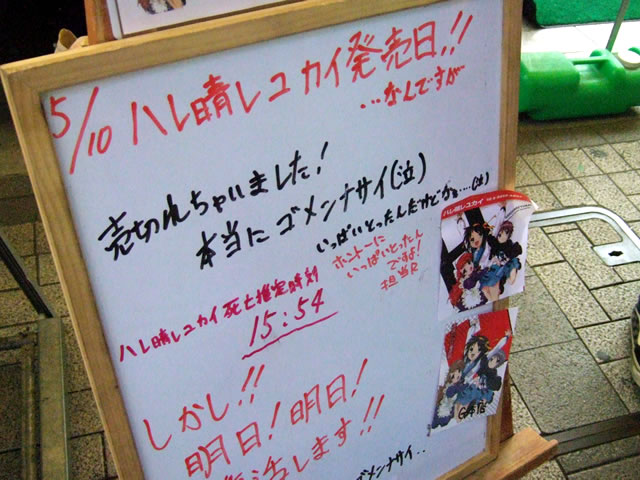 5/10 ハレ晴レユカイ発売日!!
...なんですが
売切れちゃいました!
本当にゴメンナサイ(泣)
いっぱいとったんだけどなぁ....(泣)
ホントーに
いっぱいとったん
ですよ!
担当R
ハレ晴レユカイ死亡推定時刻
15:54
しかし!!
明日!明日!
復活します!!
ゴメンナサイ..
ハレ晴レユカイ